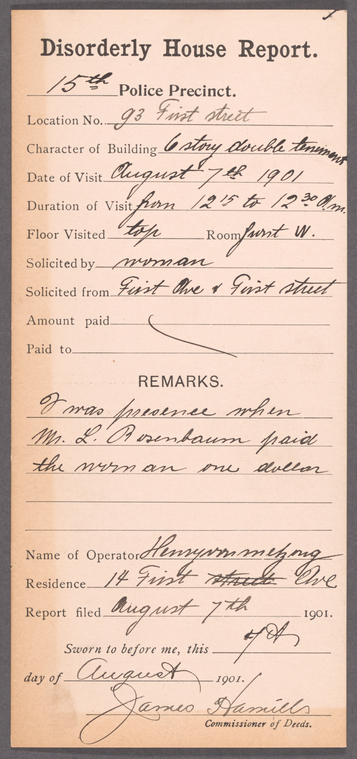 Disorderly House Report.
15th Police Precinct.
Location No. 93 First street
Character of Building 6 story double tenement
Date of Visit August 7th 1901
Duration of Visit from 12 15 to 12 30 A.m.
Floor Visited top Room W.
Solicited by woman
Solicited from First Ave & First street
Amount paid
Paid to
REMARKS.
I was presence when
Mr. L. Rosenbaum paid
the woman one dollar
Name of Operator Henry
Residence 14 First street Ave
Report filed August 7th 1901.
Sworn to before me, this 7th
day of August 1901.
James Hamill
Commissioner of Deeds.